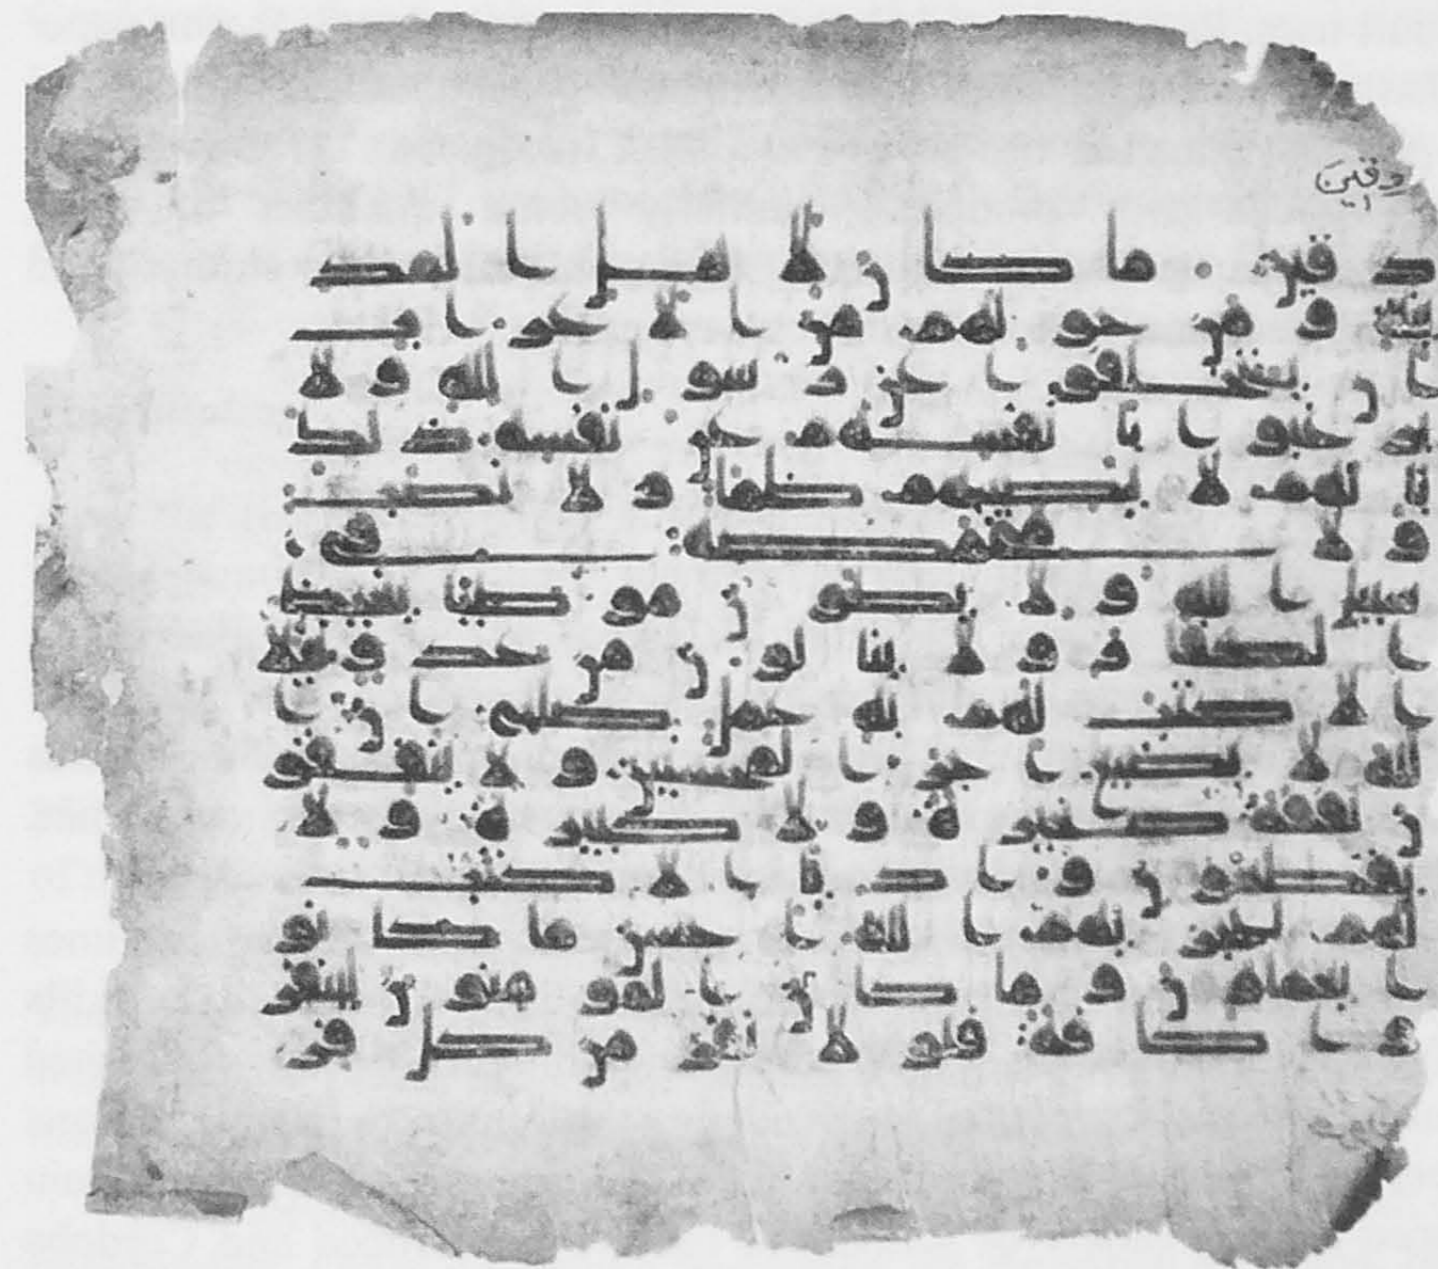 دقين
دقين ما كان لاهل المد
ينة و من حولهم من الاعراب
ان يتخلفوا عن رسول الله ولا
يرغبوا بانفسهم عن نفسه ذلك
بانهم لا يصيبهم ظما ولا نصب
ولا مخمصة في
سبيل الله ولا يطون موطيا يغيظ
الكفار ولا ينالون من عدو نيلا
الا كتب لهم به عمل صلح ان ا
لله لا يضيع اجر المحسنين ولا ينفقو
ن نفقة صغيرة ولا كبيرة ولا
يقطعون واديا الا كتب
لهم ليجزيهم الله احسن ما كانو
ا يعملون وما كان المومنون لينفر
وا كافة فلولا نفر من كل فر